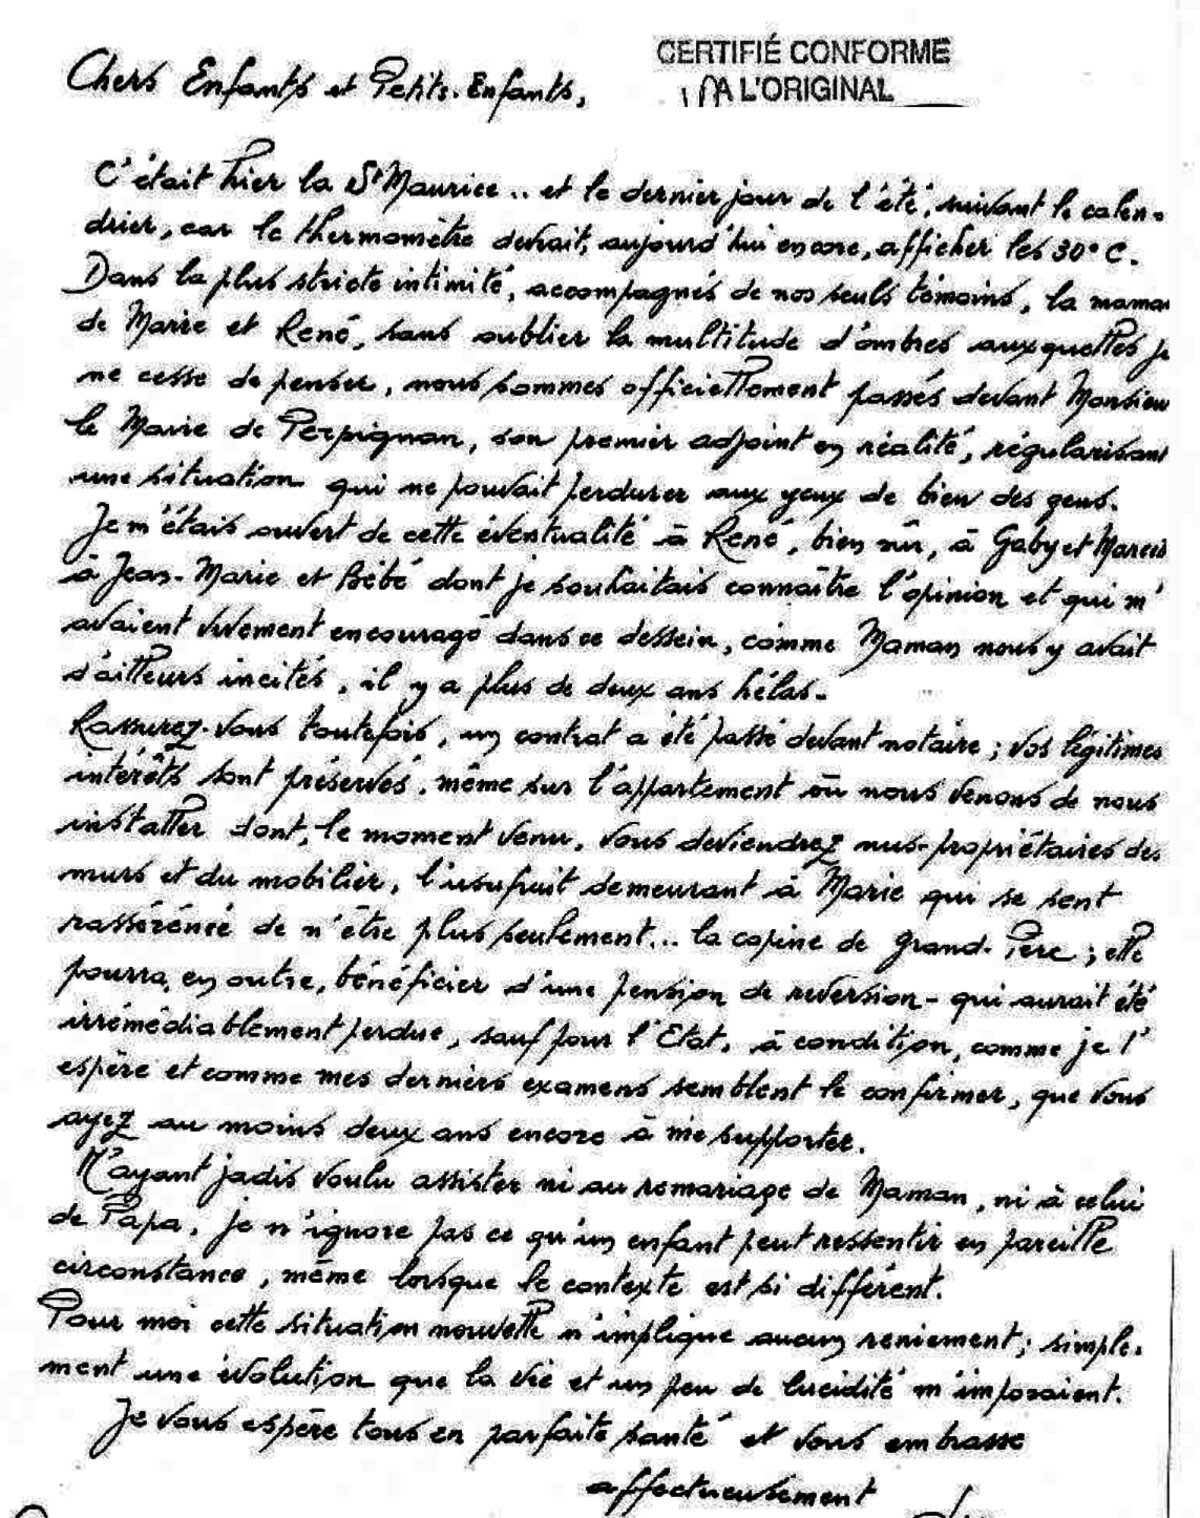 CERTIFIÉ CONFORME
A L'ORIGINAL
Chers Enfants et Petits-Enfants,
C'était hier la St Maurice.. et le dernier jour de l'été, suivant le calen-
drier, car le thermomètre devrait, aujourd'hui encore, afficher les 30° C.
Dans la plus stricte intimité, accompagnés de nos seuls témoins, la maman
de Marie et René, sans oublier la multitude d'ombres auxquelles je
ne cesse de penser, nous sommes officiellement passés devant Monsieur
le Maire de Perpignan, son premier adjoint en réalité, régularisant
une situation qui ne pouvait perdurer aux yeux de bien des gens.
Je m'étais ouvert de cette éventualité à René, bien sûr, à Gaby et
à Jean-Marie et Bébé dont je souhaitais connaître l'opinion et qui m'
avaient vivement encouragé dans ce dessein, comme Maman nous y avait
d'ailleurs incités, il y a plus de deux ans hélas.
Rassurez-vous toutefois, un contrat a été passé devant notaire ; vos légitimes
intérêts sont préservés, même sur l'appartement où nous venons de nous
installer dont, le moment venu, vous deviendrez nus-propriétaires des
murs et du mobilier, l'usufruit demeurant à Marie qui se sent
rassérénée de n'être plus seulement... la copine de Grand-Père ; elle
pourra, en outre, bénéficier d'une pension de reversion - qui aurait été
irrémédiablement perdue, sauf pour l'Etat, à condition, comme je l'
espère et comme mes derniers examens semblent le confirmer, que vous
ayez au moins deux ans encore à me supporter.
N'ayant jadis voulu assister ni au remariage de Maman, ni à celui
de Papa, je n'ignore pas ce qu'un enfant peut ressentir en pareille
circonstance, même lorsque le contexte est si différent.
Pour moi cette situation nouvelle n'implique aucun reniement ; simple-
ment une évolution que la vie et un peu de lucidité m'imposaient.
Je vous espère tous en parfaite santé et vous embrasse
affectueusement